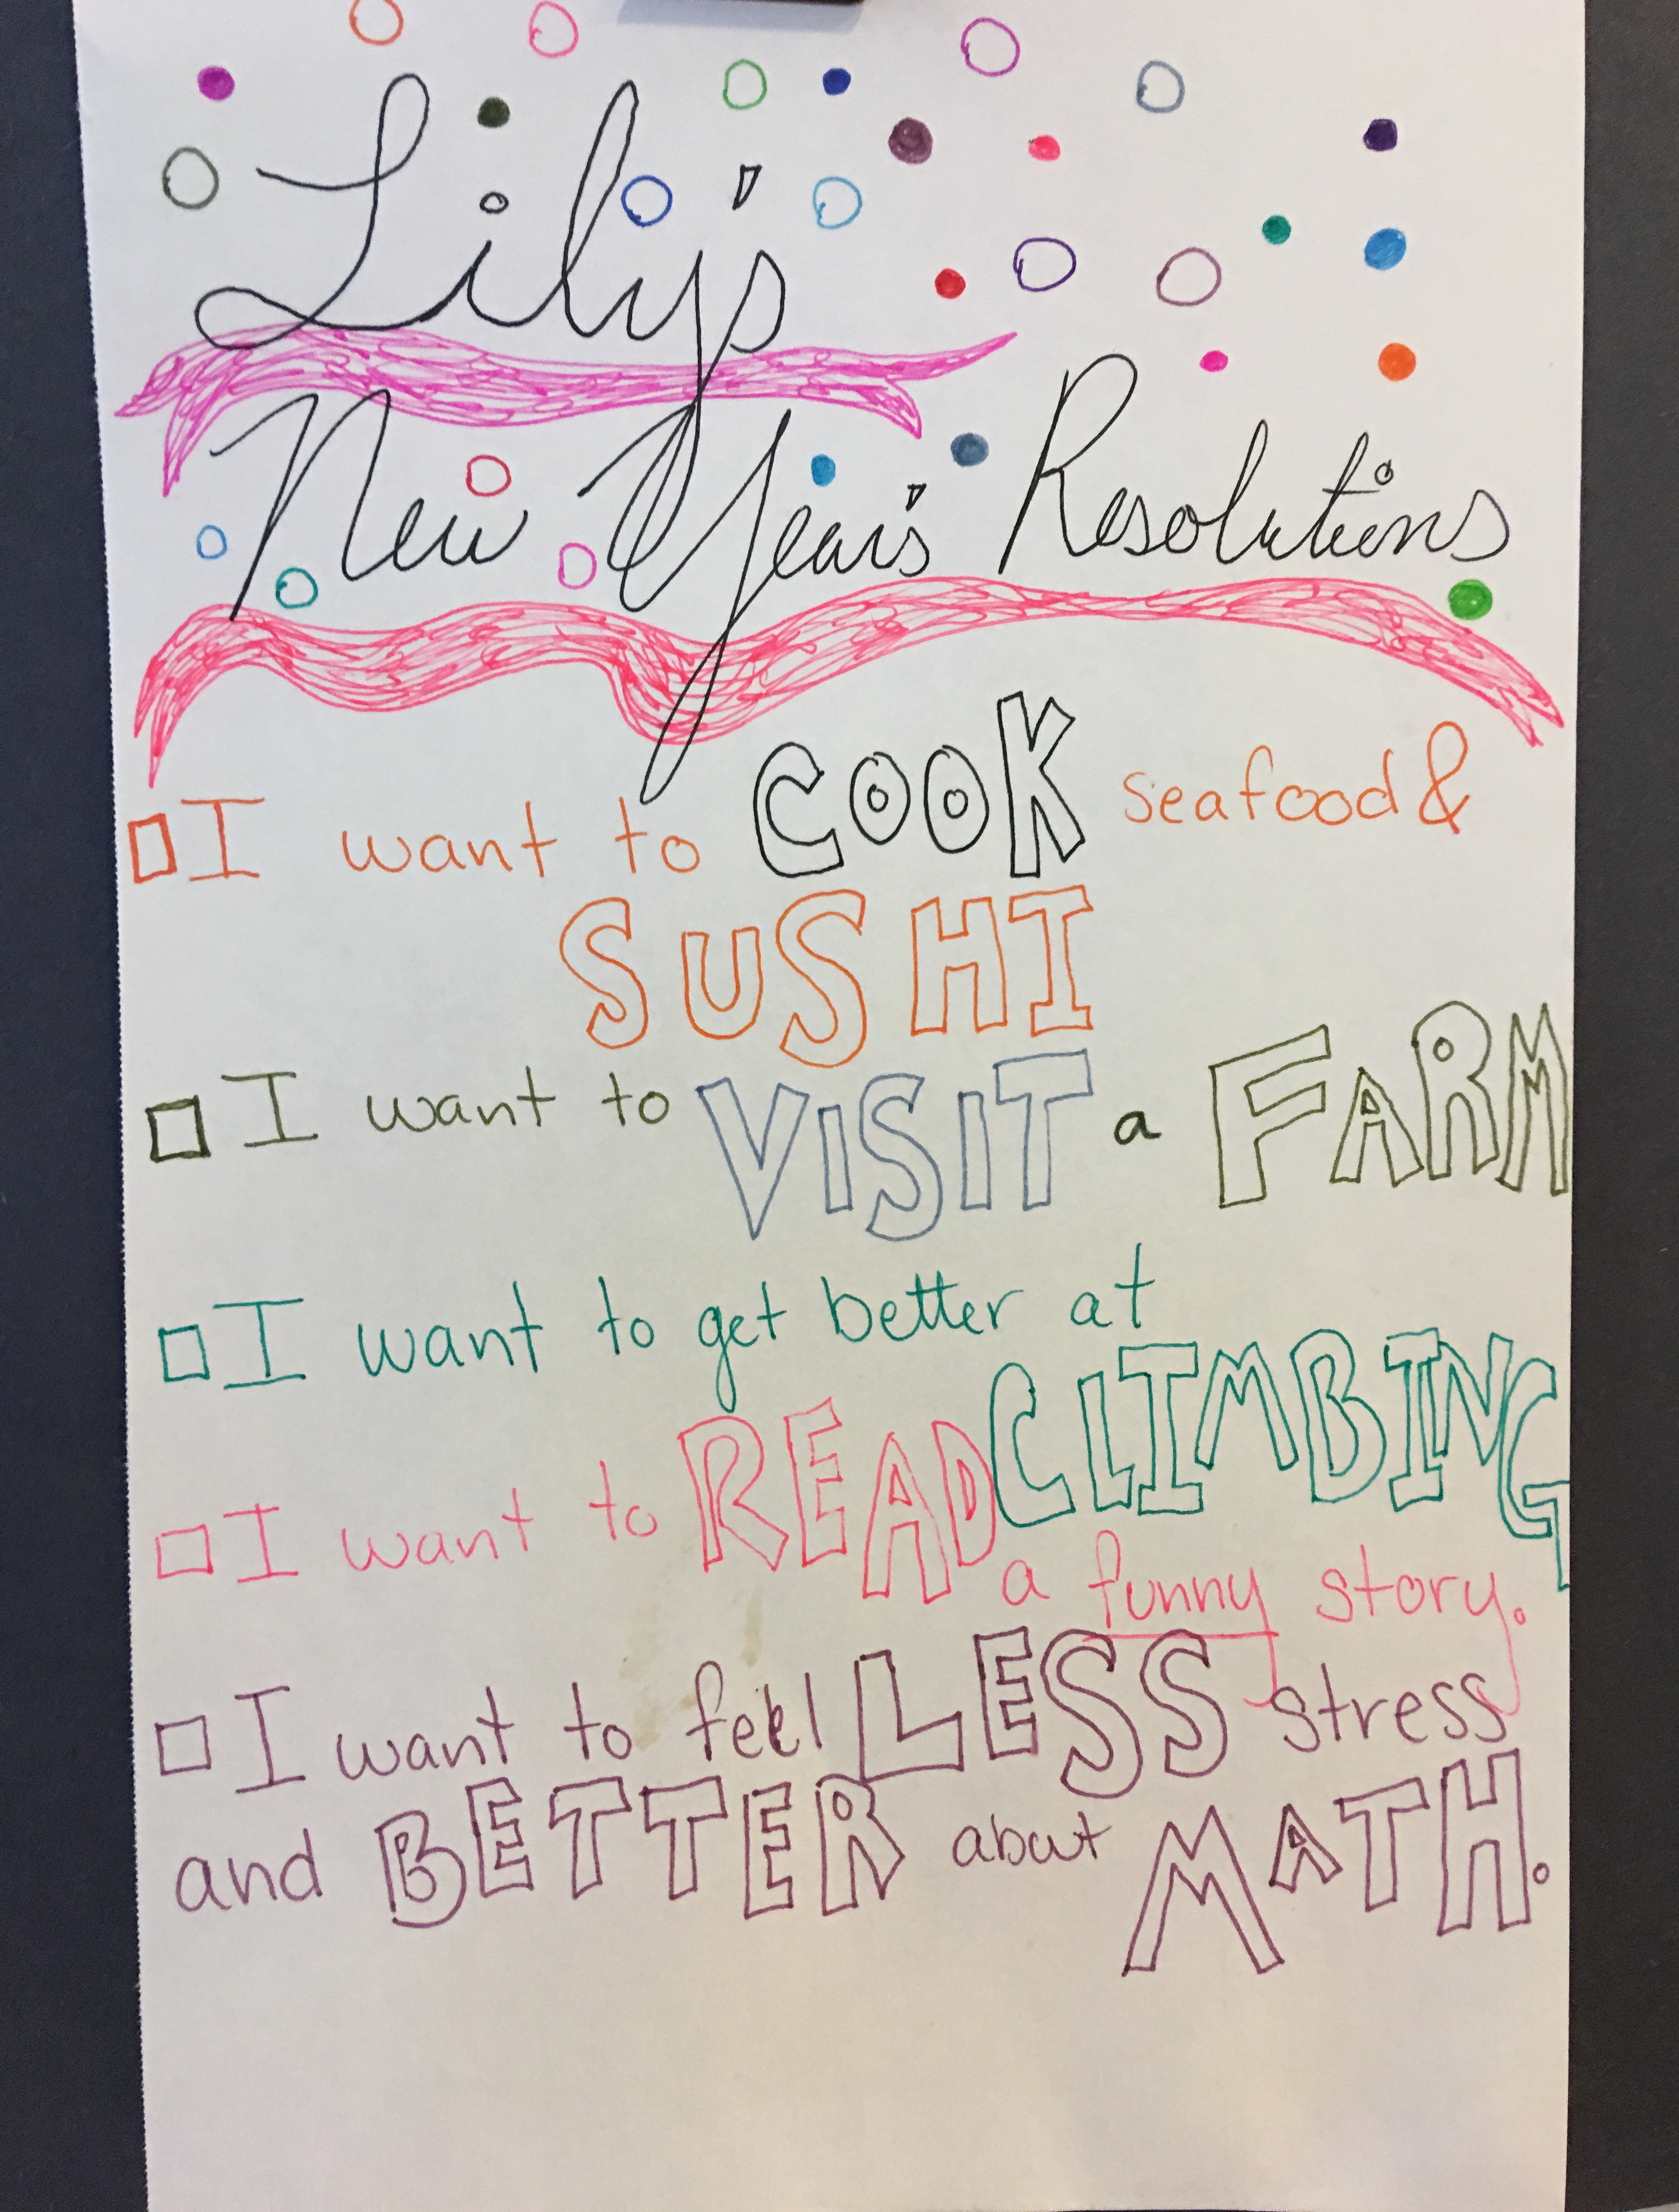 Lily's
New Year's Resolutions
I want to COOK seafood &
SUSHI
I want to VISIT a FARM
I want to get better at
CLIMBING
I want to READ
a funny story.
I want to feel LESS stress
and BETTER about MATH.